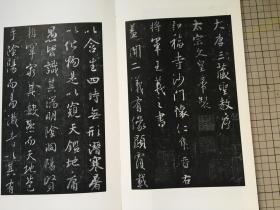 大唐三藏聖教序
太宗文皇帝製
弘福寺沙門懷仁集晉右
將軍王羲之書
蓋聞二儀有像顯覆載
以含生四時無形潛寒暑
以化物是以窺天鑑地庸
愚皆識其端明陰洞陽賢
哲罕窮其數然而天地苞
乎陰陽而易識者以其有